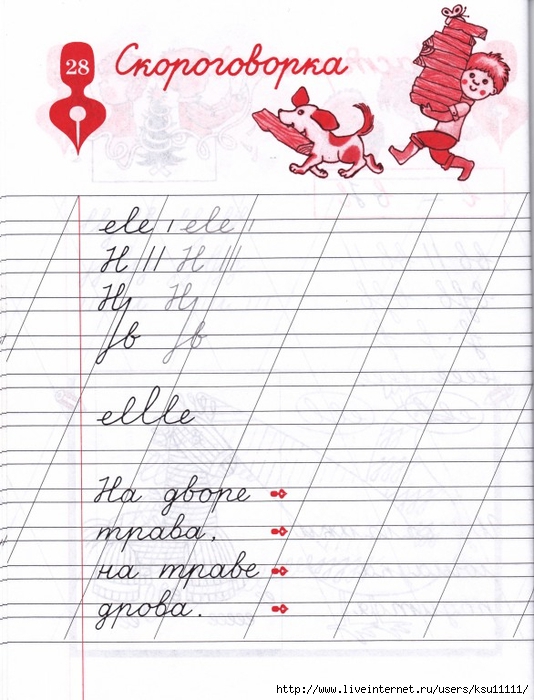 28
Скороговорка
еlе ı еlе ı
Н l l Н l l l
Н Н
fв fв
еllle
На дворе
трава,
на траве
дрова.
http://www.liveinternet.ru/users/ksu11111/